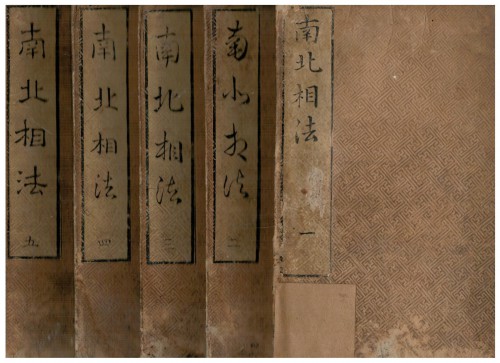 南北相法 一
南北相法 二
南北相法 三
南北相法 四
南北相法 五